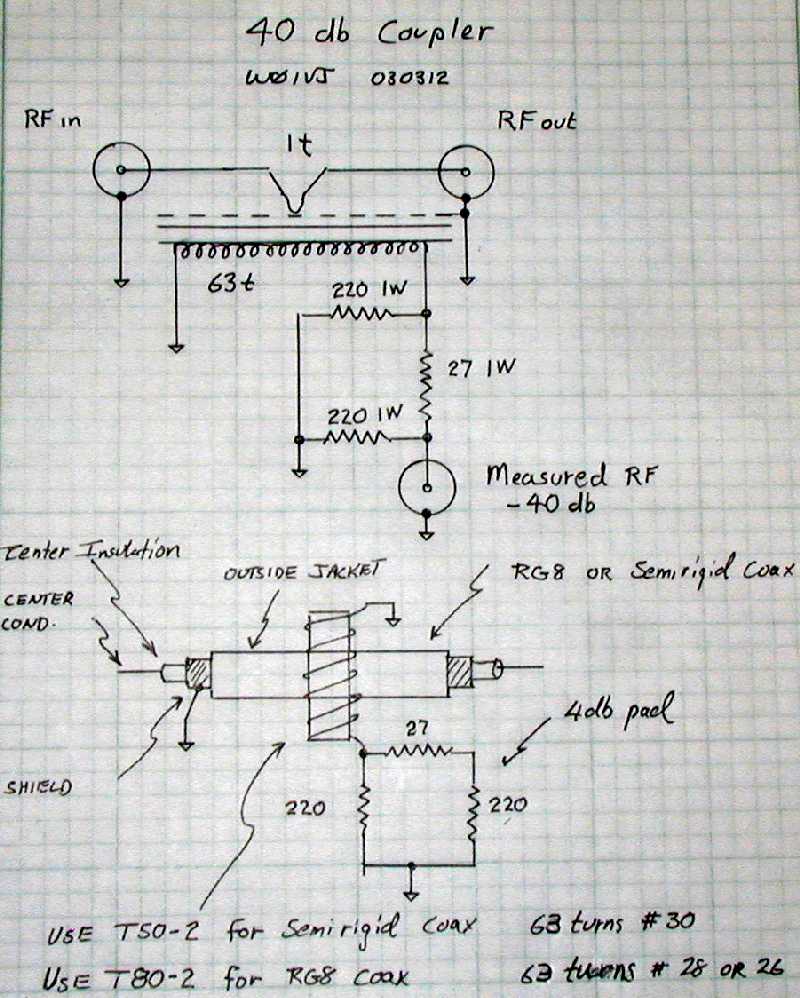 40 db Coupler
WØIVJ 030312
RF in
RF out
1t
63t
220 1W
27 1W
220 1W
Measured RF
-40 db
Center Insulation
OUTSIDE JACKET
RG8 OR Semirigid Coax
CENTER
COND.
4db pad
27
SHIELD
220
220
USE T50-2 for Semirigid Coax 63 turns #30
USE T80-2 for RG8 Coax 63 turns # 28 OR 26